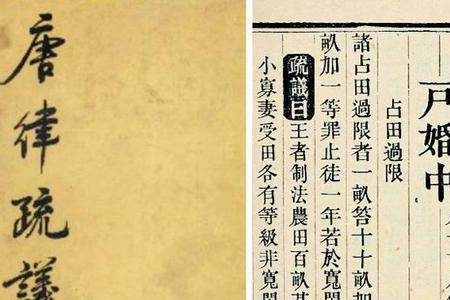 唐律疏議
戶婚中
占田過限
諸占田過限者一畝笞十十畝加
畝加一等罪止徒一年若於寬閒
疏議曰王者制法農田百畝其
小寡妻受田各有等級非寬閒